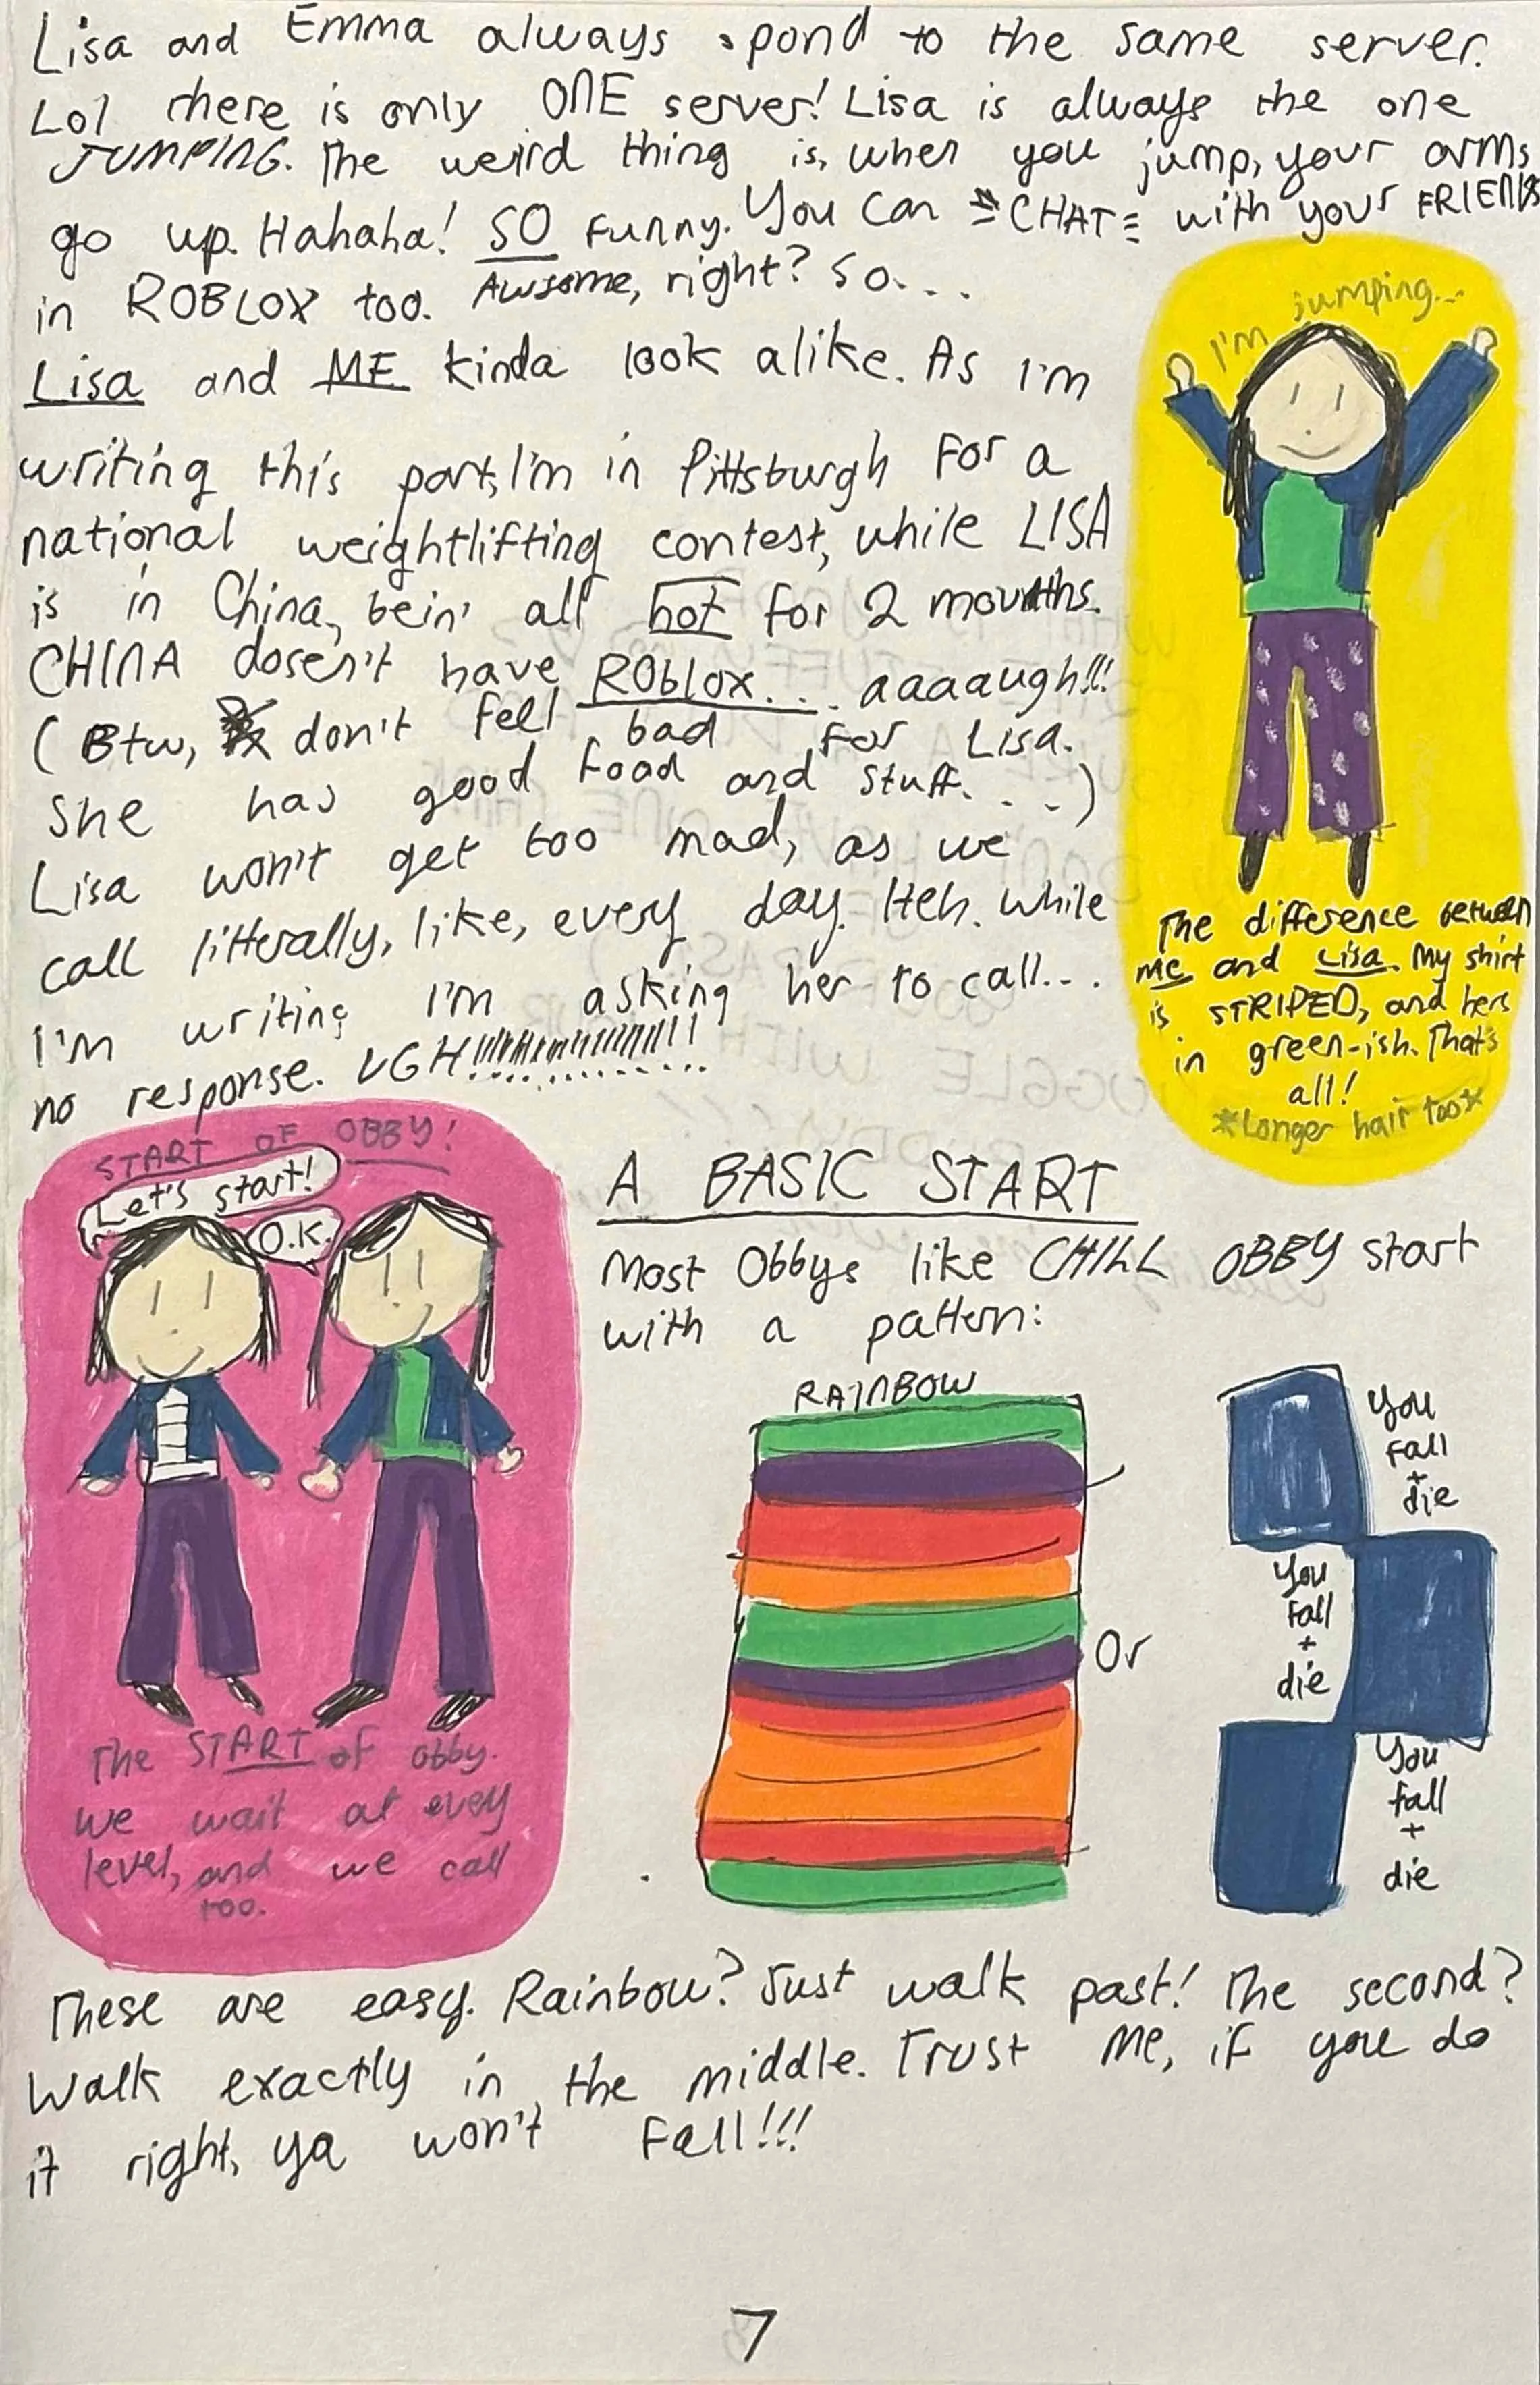 Lisa and Emma always spond to the same server.
Lol there is only ONE server! Lisa is always the one
JUMPING. The weird thing is, when you jump, your arms
go up. Hahaha! SO funny. You can CHAT with your FRIENDS
in ROBLOX too. Awsome, right? So...
Lisa and ME kinda look alike. As I'm
writing this part, I'm in Pittsburgh for a
national weightlifting contest, while LISA
is in China, bein' all hot for 2 mounths.
CHINA dosen't have ROblox... aaaaaugh!!!
(Btw, don't fell bad for Lisa.
She has good food and stuff....)
Lisa won't get too mad, as we
call litterally, like, every day. Heh. While
I'm writing I'm asking her to call...
no response. UGH!!!!!!!!!!!!!!!!
I'm jumping...
The difference between
me and Lisa. My shirt
is STRIPED, and hers
in green-ish. That's
all!
*Longer hair too*
START OF OBBY!
Let's start!
O.K.
The START of obby.
We wait at every
level, and we call
too.
A BASIC START
Most Obbys like CHILL OBBY start
with a pattern:
RAINBOW
Or
You
fall
+
die
You
fall
+
die
You
fall
+
die
These are easy. Rainbow? Just walk past! The second?
Walk exactly in the middle. Trust me, if you do
it right, ya won't fall!!!
7